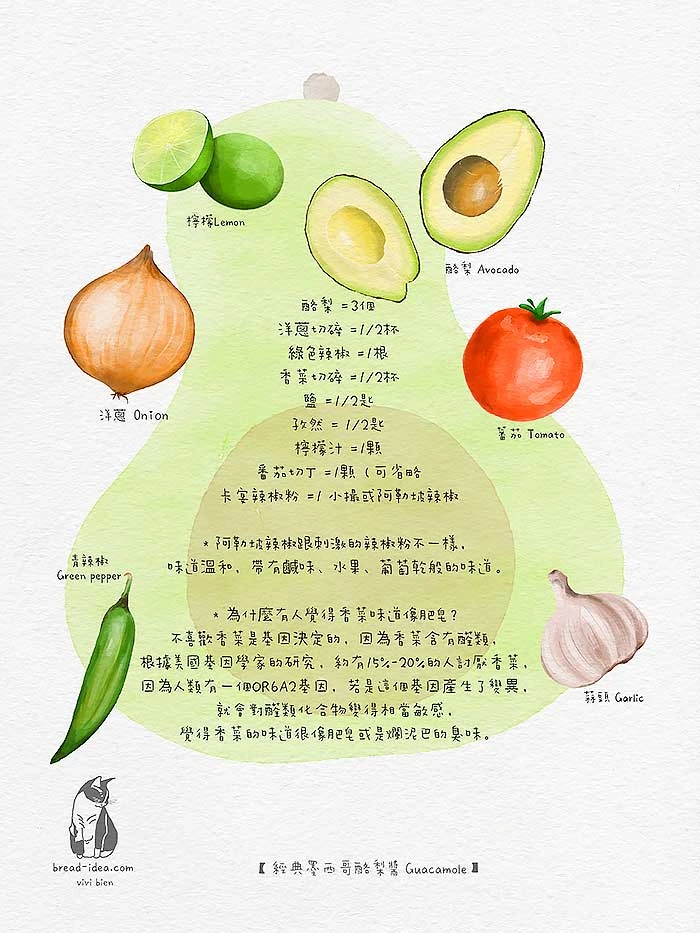 檸檬Lemon
酪梨 Avocado
洋蔥 Onion
蕃茄 Tomato
酪梨 =3個
洋蔥切碎 =1/2杯
綠色辣椒 =1根
香菜切碎 =1/2杯
鹽 =1/2匙
孜然 = 1/2匙
檸檬汁 =1顆
番茄切丁 =1顆 (可省略
卡宴辣椒粉 =1 小撮或阿勒坡辣椒
* 阿勒坡辣椒跟刺激的辣椒粉不一樣，
味道溫和，帶有鹹味、水果、葡萄乾般的味道。
* 為什麼有人覺得香菜味道像肥皂？
不喜歡香菜是基因決定的，因為香菜含有醛類，
根據美國基因學家的研究，約有15%-20%的人討厭香菜，
因為人類有一個OR6A2基因，若是這個基因產生了變異，
就會對醛類化合物變得相當敏感，
覺得香菜的味道很像肥皂或是爛泥巴的臭味。
青辣椒
Green pepper
蒜頭 Garlic
bread-idea.com
vivi bien
【 經典墨西哥酪梨醬 Guacamole 】